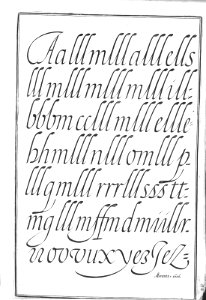 Aalllmlllalllells
lllmlllmlllmlllill-
bbbmcclllmlllellle-
bhmlllnlllomlllp
lllqmlllrrrlllssstt-
mglllmffmdmiillr-
novvuxyez